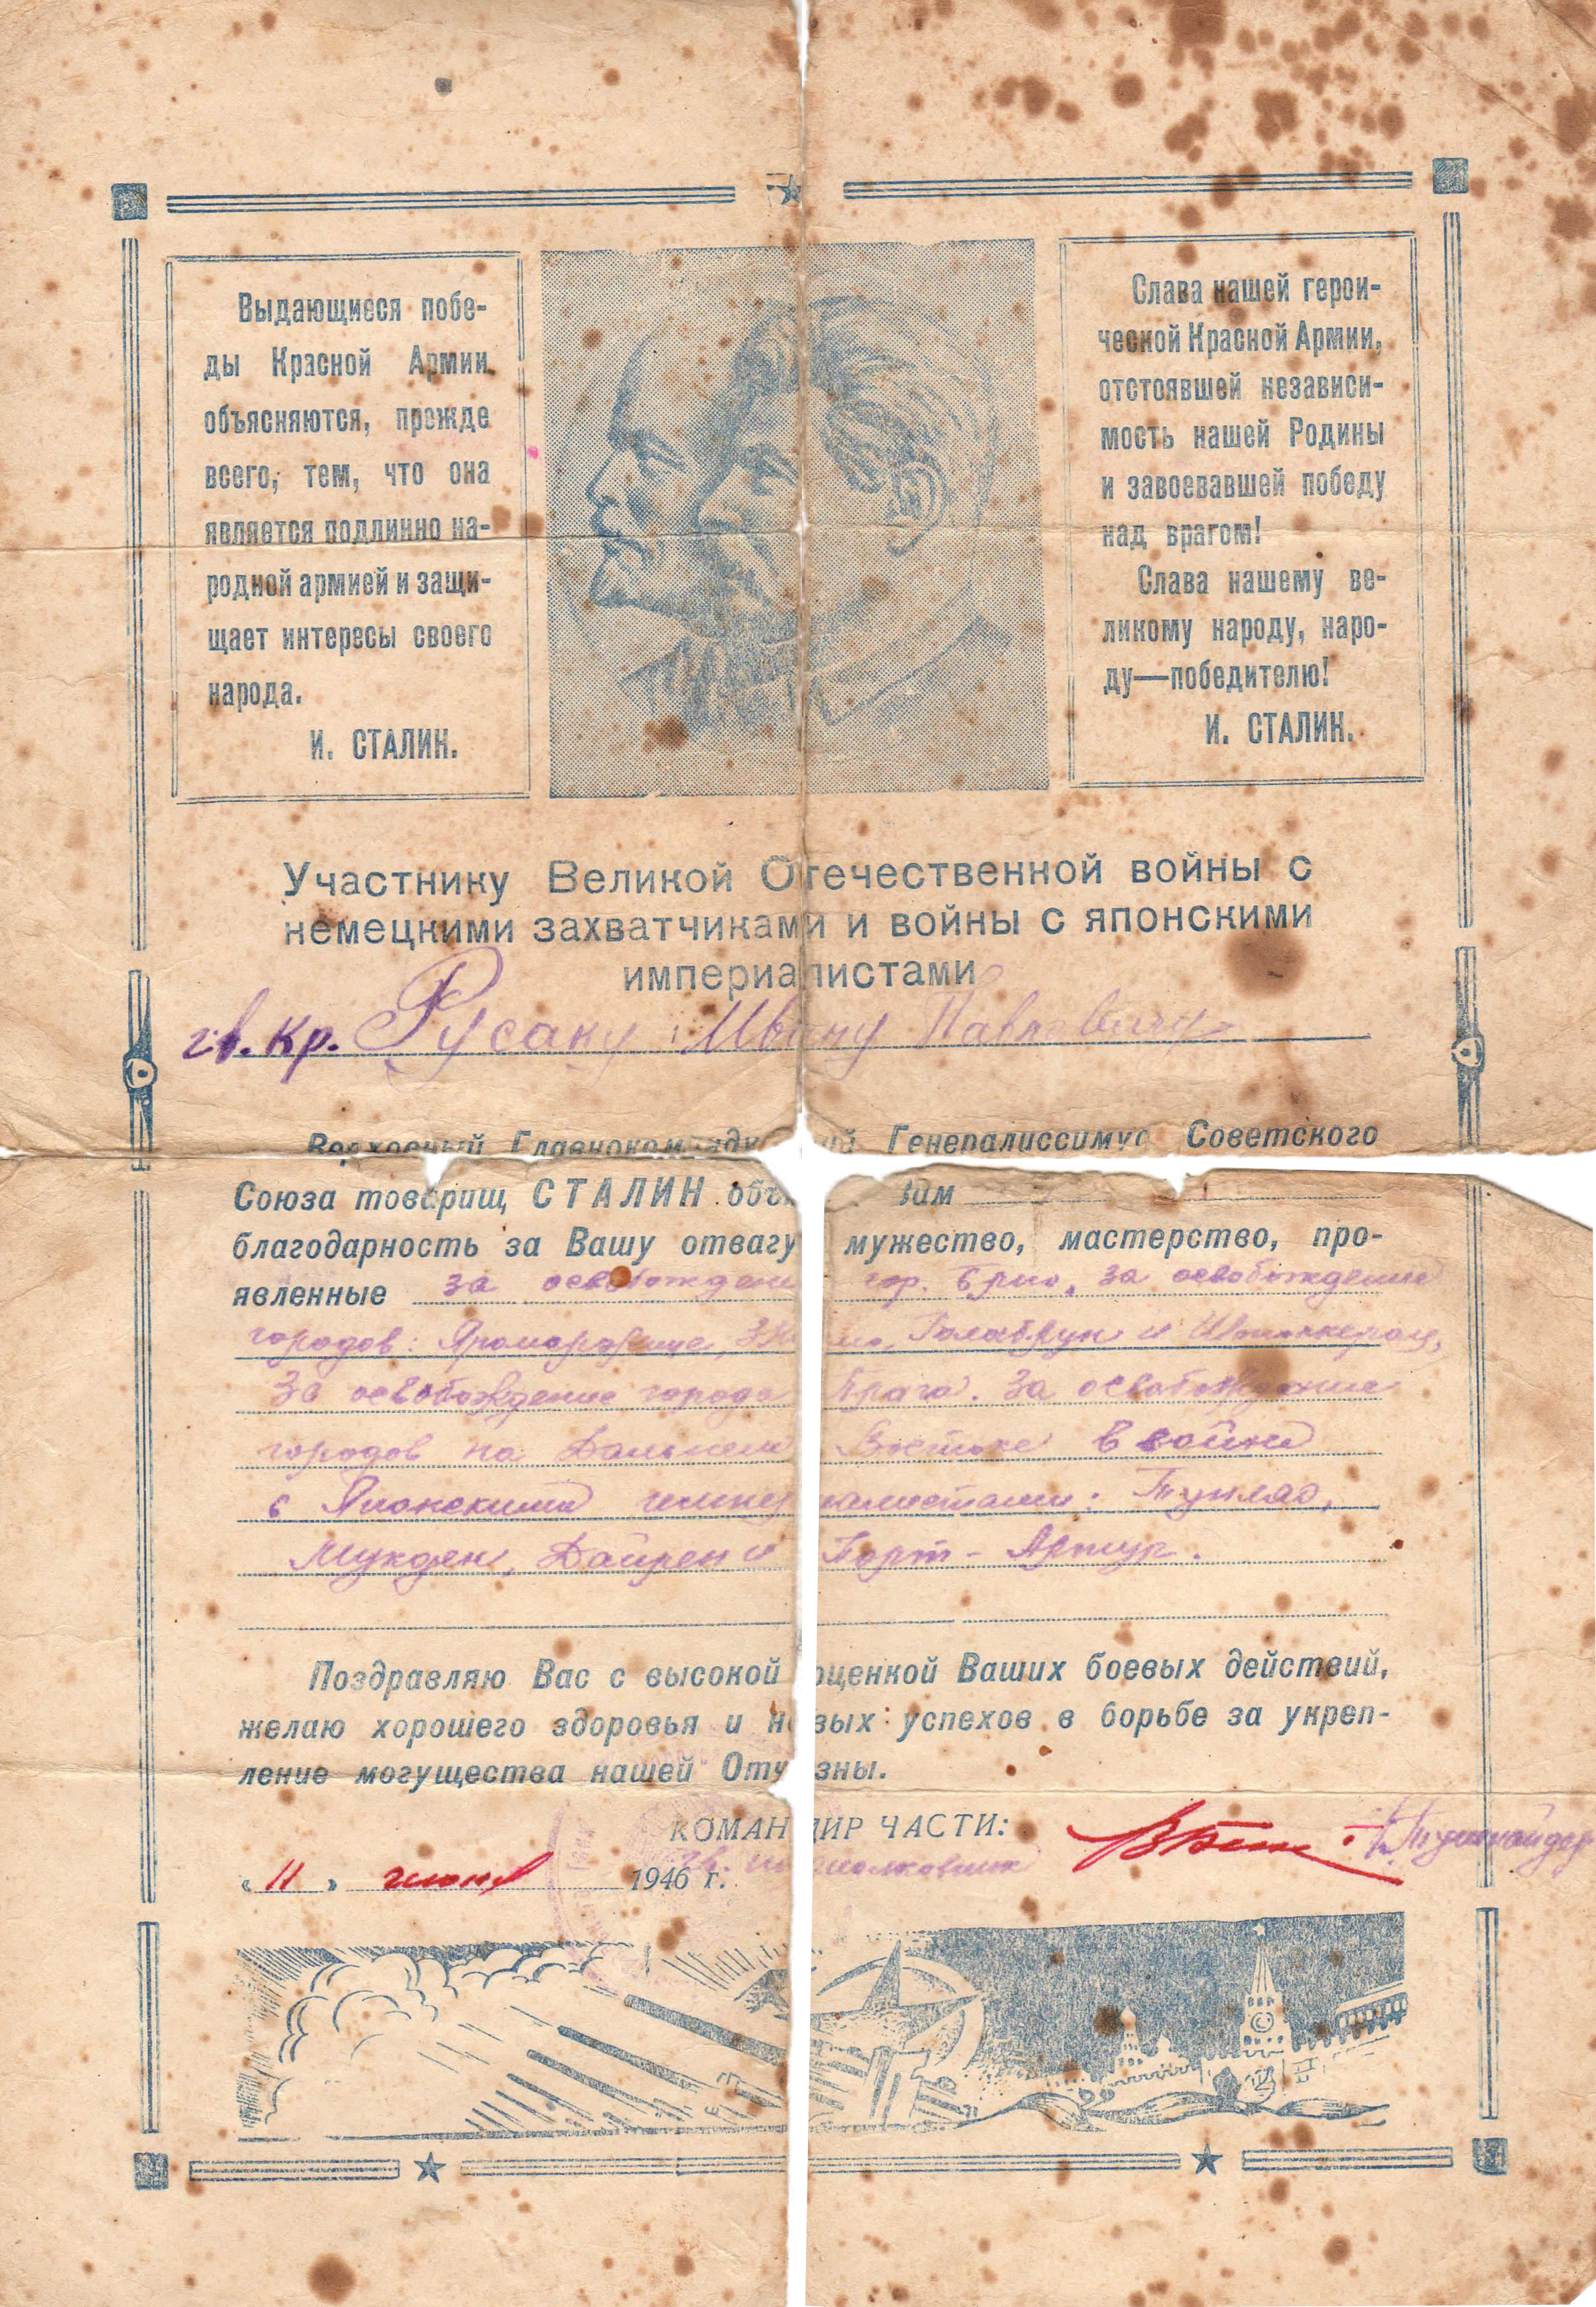 Выдающиеся побе-
ды Красной Армии
объясняются, прежде
всего, тем, что она
является подлинно на-
родной армией и защи-
щает интересы своего
народа.
И. СТАЛИН.
Слава нашей герои-
ческой Красной Армии,
отстоявшей независи-
мость нашей Родины
и завоевавшей победу
над врагом!
Слава нашему ве-
ликому народу, наро-
ду—победителю!
И. СТАЛИН.
Участнику Великой Отечественной войны с
немецкими захватчиками и войны с японскими
империалистами
гв. кр. Русаку Ивану Павловичу
Верховный Главнокоманду ий Генералиссимус Советского
Союза товарищ СТАЛИН объ Вам
благодарность за Вашу отвагу мужество, мастерство, про-
явленные за освобождени гор. Брно, за освобождение
городов: Яромержице, Зн мо, Голабрун и Штоккерау,
За освобождение города Прага. За освобождение
городов на Дальнем Востоке в войне
с Японскими импер алистами: Тунляо,
Мукден, Дайрен и Порт-Артур.
Поздравляю Вас с высокой оценкой Ваших боевых действий,
желаю хорошего здоровья и новых успехов в борьбе за укреп-
ление могущества нашей Отч зны.
КОМАНДИР ЧАСТИ:
гв. полковник
« 11 » июня 1946 г.